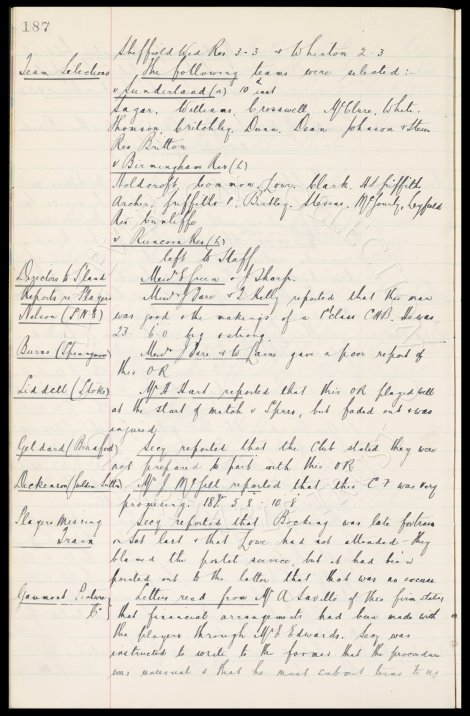 187
Sheffield Wed Res 3-3 + Whiston 2 3
Team Selections The following teams were selected :-
v Sunderland (a) 10th inst
Sagar, Williams, Cresswell, McClure, White,
Thomson, Critchley, Dunn, Dean, Johnson + Stein
Res Britton
v Birmingham Res (h)
Holdcroft, Common, Lowe, Clark, A J Griffiths,
Archer, Griffiths P, Birtley, Stevens, McGourty, Leyfield
Res Cunliffe
v Runcorn Res (h)
left to Staff
Directors to Stand Messrs Green + J Sharp.
Reports re Players Messrs Gare + T Kelly reported that this man
Nelson (P.N.E) was good + the makings of a 1st class C.H.B. He was
23. 6.0 big + strong.
Burns (Spennymoor) Messrs Gare + gave a poor report of
this OR
Liddell (Stoke) Mr H Hart reported that this OR played well
at the start of match v Spurs, but faded out + was
injured
Geldard (Bradford) Secy reported that the Club stated they were
not prepared to part with this OR.
Dickenson (Sutton) Mr J McGill reported that this C F was very
promising. 18½ 5.8. 10.8
Players Missing Secy reported that Bocking was late for train
Train on Sat last + that Lowe had not attended. They
blamed the postal service, but it had been
pointed out to the latter that that was no excuse
Gaumont Letter read from Mr A Saville of this firm stating
Co that financial arrangements had been made with
the players through Mr E Edwards. Secy was
instructed to write to the former that the procedure
was unusual + that he must submit terms to us